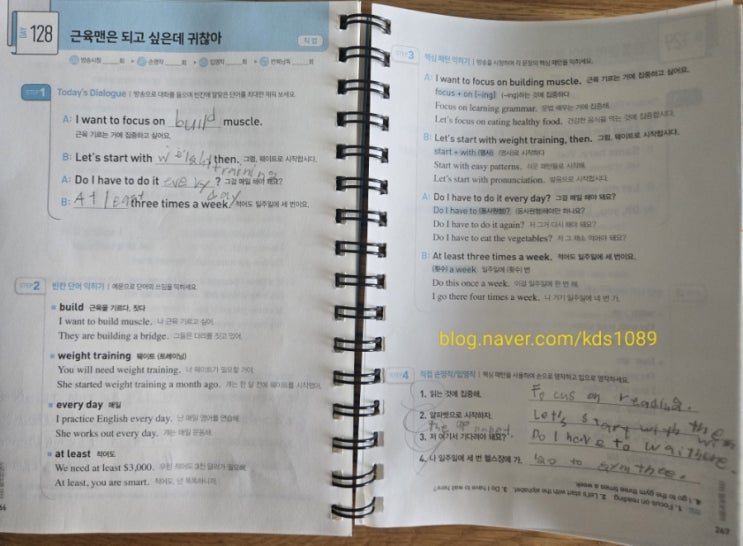 DAY 128
근육맨은 되고 싶은데 귀찮아
직업
방송시청 회 손영작 회 입영작 회 반복낭독 회
STEP 1 Today's Dialogue | 방송으로 대화를 들으며 빈칸에 알맞은 단어를 최대한 채워 보세요.
A: I want to focus on build muscle.
근육 기르는 거에 집중하고 싶어요.
B: Let's start with weight training then. 그럼, 웨이트로 시작합시다.
A: Do I have to do it every day? 그걸 매일 해야 돼요?
B: At least three times a week. 적어도 일주일에 세 번이요.
STEP 2 빈출 단어 익히기 | 예문으로 단어의 쓰임을 익히세요.
build 근육을 기르다, 짓다
I want to build muscle. 난 근육 기르고 싶어.
They are building a bridge. 그들은 다리를 짓고 있어.
weight training 웨이트 (트레이닝)
You will need weight training. 너 웨이트가 필요할 거야.
She started weight training a month ago. 걔는 한 달 전에 웨이트를 시작했어.
every day 매일
I practice English every day. 난 매일 영어를 연습해.
She works out every day. 걔는 매일 운동해.
at least 적어도
We need at least $3,000. 우린 적어도 3천 달러가 필요해.
At least, you are smart. 적어도, 넌 똑똑하니까.
66
STEP 3 핵심 패턴 익히기 | 방송을 시청하며 각 문장의 핵심 패턴을 익히세요.
A: I want to focus on building muscle. 근육 기르는 거에 집중하고 싶어요.
focus + on (~ing) (~ing)하는 것에 집중하다
Focus on learning grammar. 문법 배우는 거에 집중해.
Let's focus on eating healthy food. 건강한 음식을 먹는 것에 집중합시다.
B: Let's start with weight training, then. 그럼, 웨이트로 시작합시다.
start + with (명사) (명사)로 시작하다
Start with easy patterns. 쉬운 패턴들로 시작해.
Let's start with pronunciation. 발음으로 시작합시다.
A: Do I have to do it every day? 그걸 매일 해야 돼요?
Do I have to (동사원형)? (동사원형)해야만 하나요?
Do I have to do it again? 저 그거 다시 해야 돼요?
Do I have to eat the vegetables? 저 그 채소 먹어야 돼요?
B: At least three times a week. 적어도 일주일에 세 번이요.
(횟수) a week 일주일에 (횟수) 번
Do this once a week. 이걸 일주일에 한 번 해.
I go there four times a week. 나 거기 일주일에 네 번 가.
blog.naver.com/kds1089
STEP 4 직접 손영작/입영작 | 핵심 패턴을 사용하여 손으로 영작하고 입으로 영작하세요.
1. 읽는 것에 집중해. Focus on reading.
2. 알파벳으로 시작하자. Let's start with the
3. 저 여기서 기다려야 돼요? Do I have to wait here.
4. 나 일주일에 세 번 헬스장에 가. go to gym three.
1. Focus on reading. 2. Let's start with the alphabet. 3. Do I have to wait here?
4. I go to the gym three times a week.
267